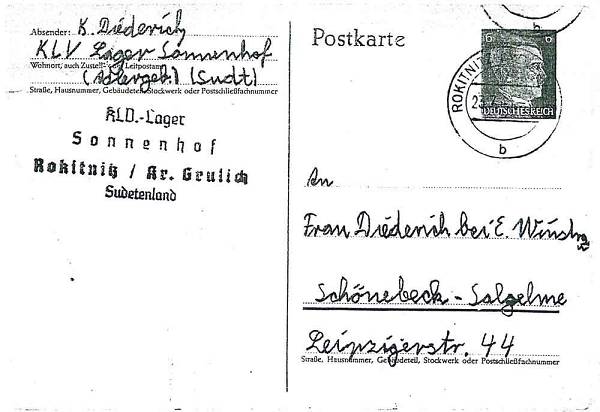 Absender: K. Diederich
KLV Lager Sonnenhof
Wohnort, auch Zustell- oder Leitpostamt
(Adlergeb.) (Sudt)
Straße, Hausnummer, Gebäudeteil, Stockwerk oder Postschließfachnummer
KLV.-Lager
Sonnenhof
Rokitnitz / Kr. Grulich
Sudetenland
Postkarte
DEUTSCHES REICH
ROKITNITZ
b
b
An
Frau Diederich bei E.
Schönebeck - Salzelme
Leipzigerstr. 44
Straße, Hausnummer, Gebäudeteil, Stockwerk oder Postschließfachnummer